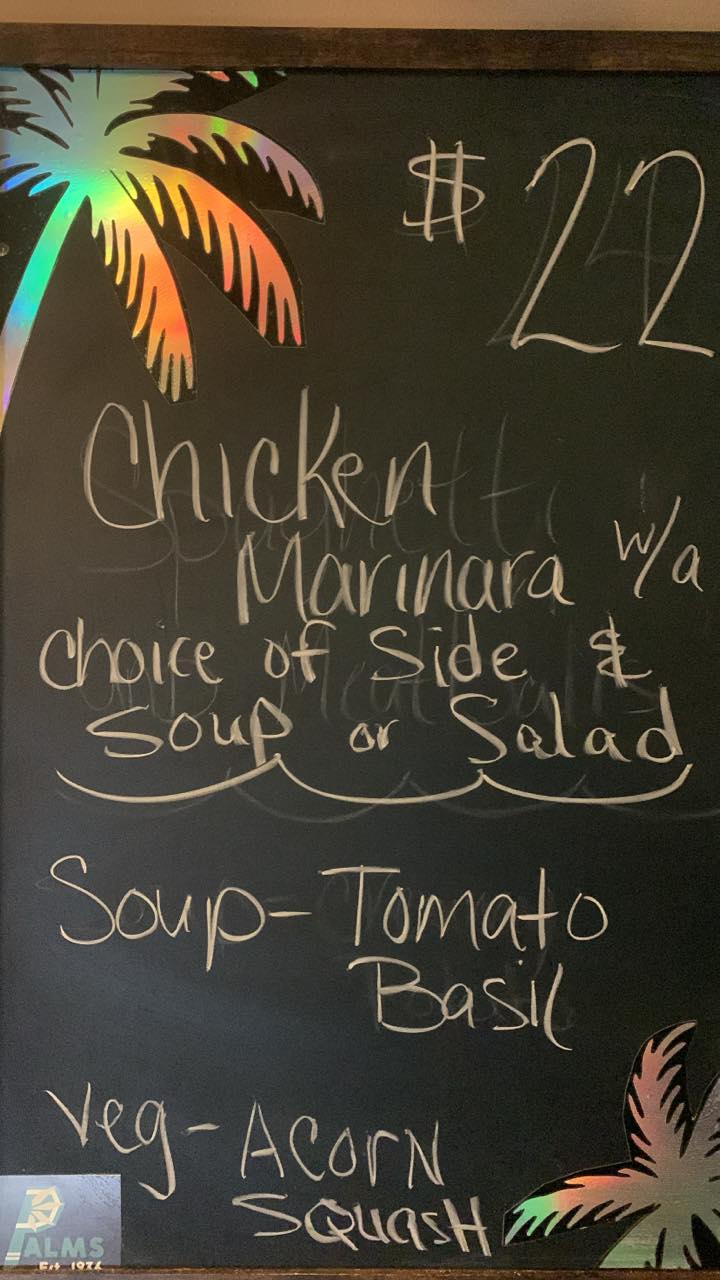 $22
Chicken
Marinara w/a
choice of Side &
Soup or Salad
Soup- Tomato
Basil
Veg- Acorn
Squash
PALMS
Est. 1936